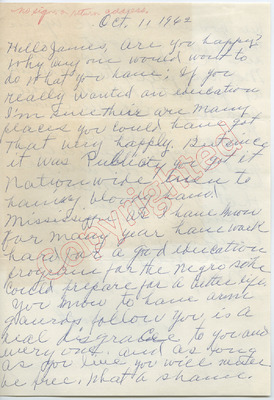 no sign or return address
Oct. 11, 1962
Hello James, are you happy?
Why any one would want to
do what you have; If you
really wanted an education
I'm sure there are many
places you would have got
that very happily. But since
it was Publicity you got it
Nation wide. Even to
bloody
Mississippi
for many year have work
hard on a good education
program for the Negro so he
could prepare for a better life.
You know to have arm
guards follow you, is a
real disgrace to you and
every one. and as long
as you live you will never
be free. What a shame.
copyrighted